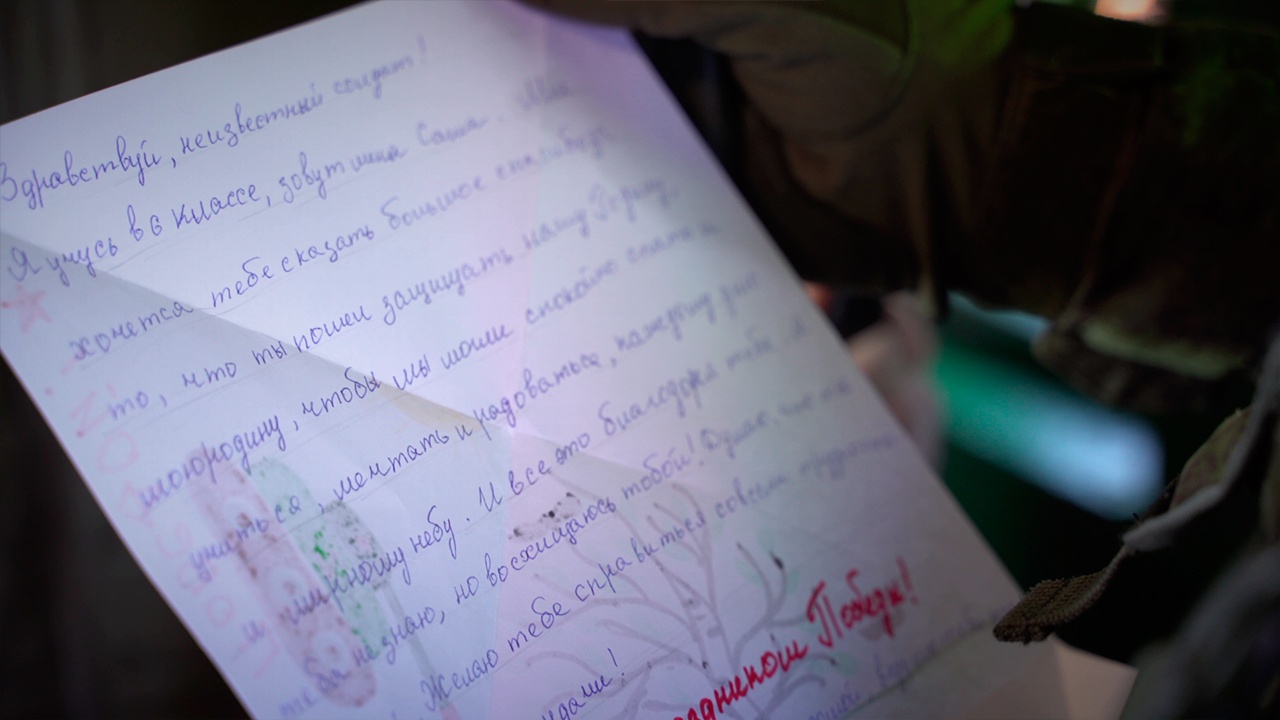 Здравствуй, неизвестный солдат!
Я учусь в 6 классе, зовут меня Саша. Мне
хочется тебе сказать большое спасибо за
то, что ты пошел защищать нашу Родину,
мою родину, чтобы мы могли спокойно спать и
учиться, мечтать и радоваться, каждому дню
и мирному небу. И все это благодаря тебе. Я
тебя не знаю, но восхищаюсь тобой! Думаю, что ты
Желаю тебе справиться со всеми
дами!
здником Победы!